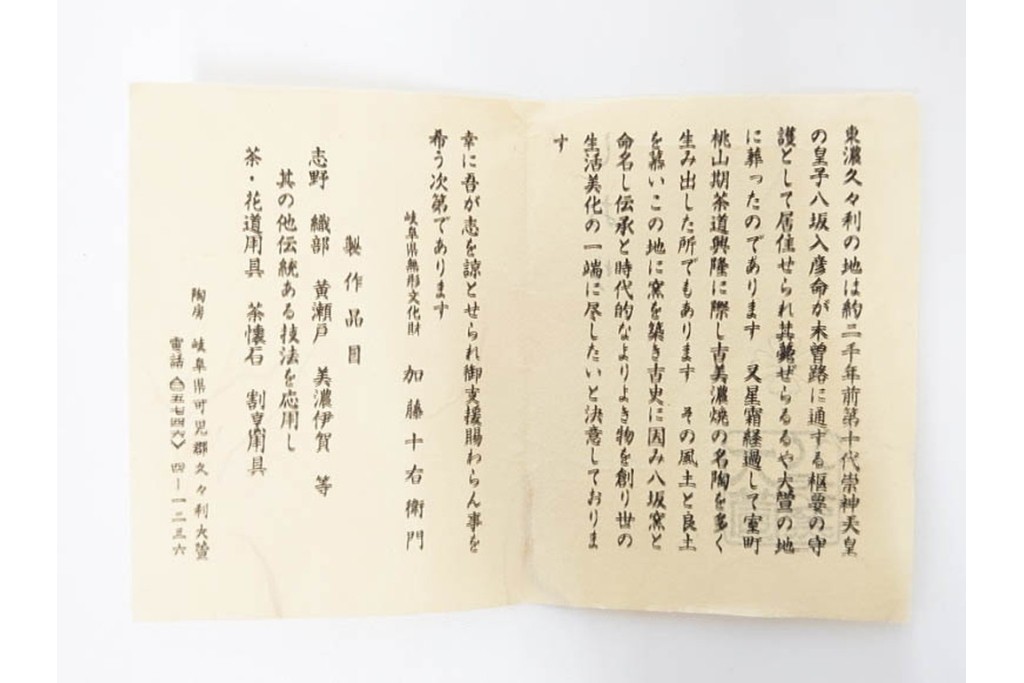 東濃久々利の地は約二千年前第十代崇神天皇
の皇子八坂入彦命が木曽路に通ずる枢要の守
護として居住せられ其薨ぜらるるや大萱の地
に葬ったのであります 又星霜経過して室町
桃山期茶道興隆に際し古美濃焼の名陶を多く
生み出した所でもあります その風土と良土
を慕いこの地に窯を築き古史に因み八坂窯と
命名し伝承と時代的なよりよき物を創り世の
生活美化の一端に尽したいと決意しておりま
す
幸に吾が志を諒とせられ御支援賜わらん事を
希う次第であります
岐阜県無形文化財 加藤十右衛門
製作品目
志野 織部 黄瀬戸 美濃伊賀 等
其の他伝統ある技法を応用し
茶・花道用具 茶懐石 割烹用具
陶房 岐阜県可児郡久々利大萱
電話〈〇五七四六〉四―一二三六